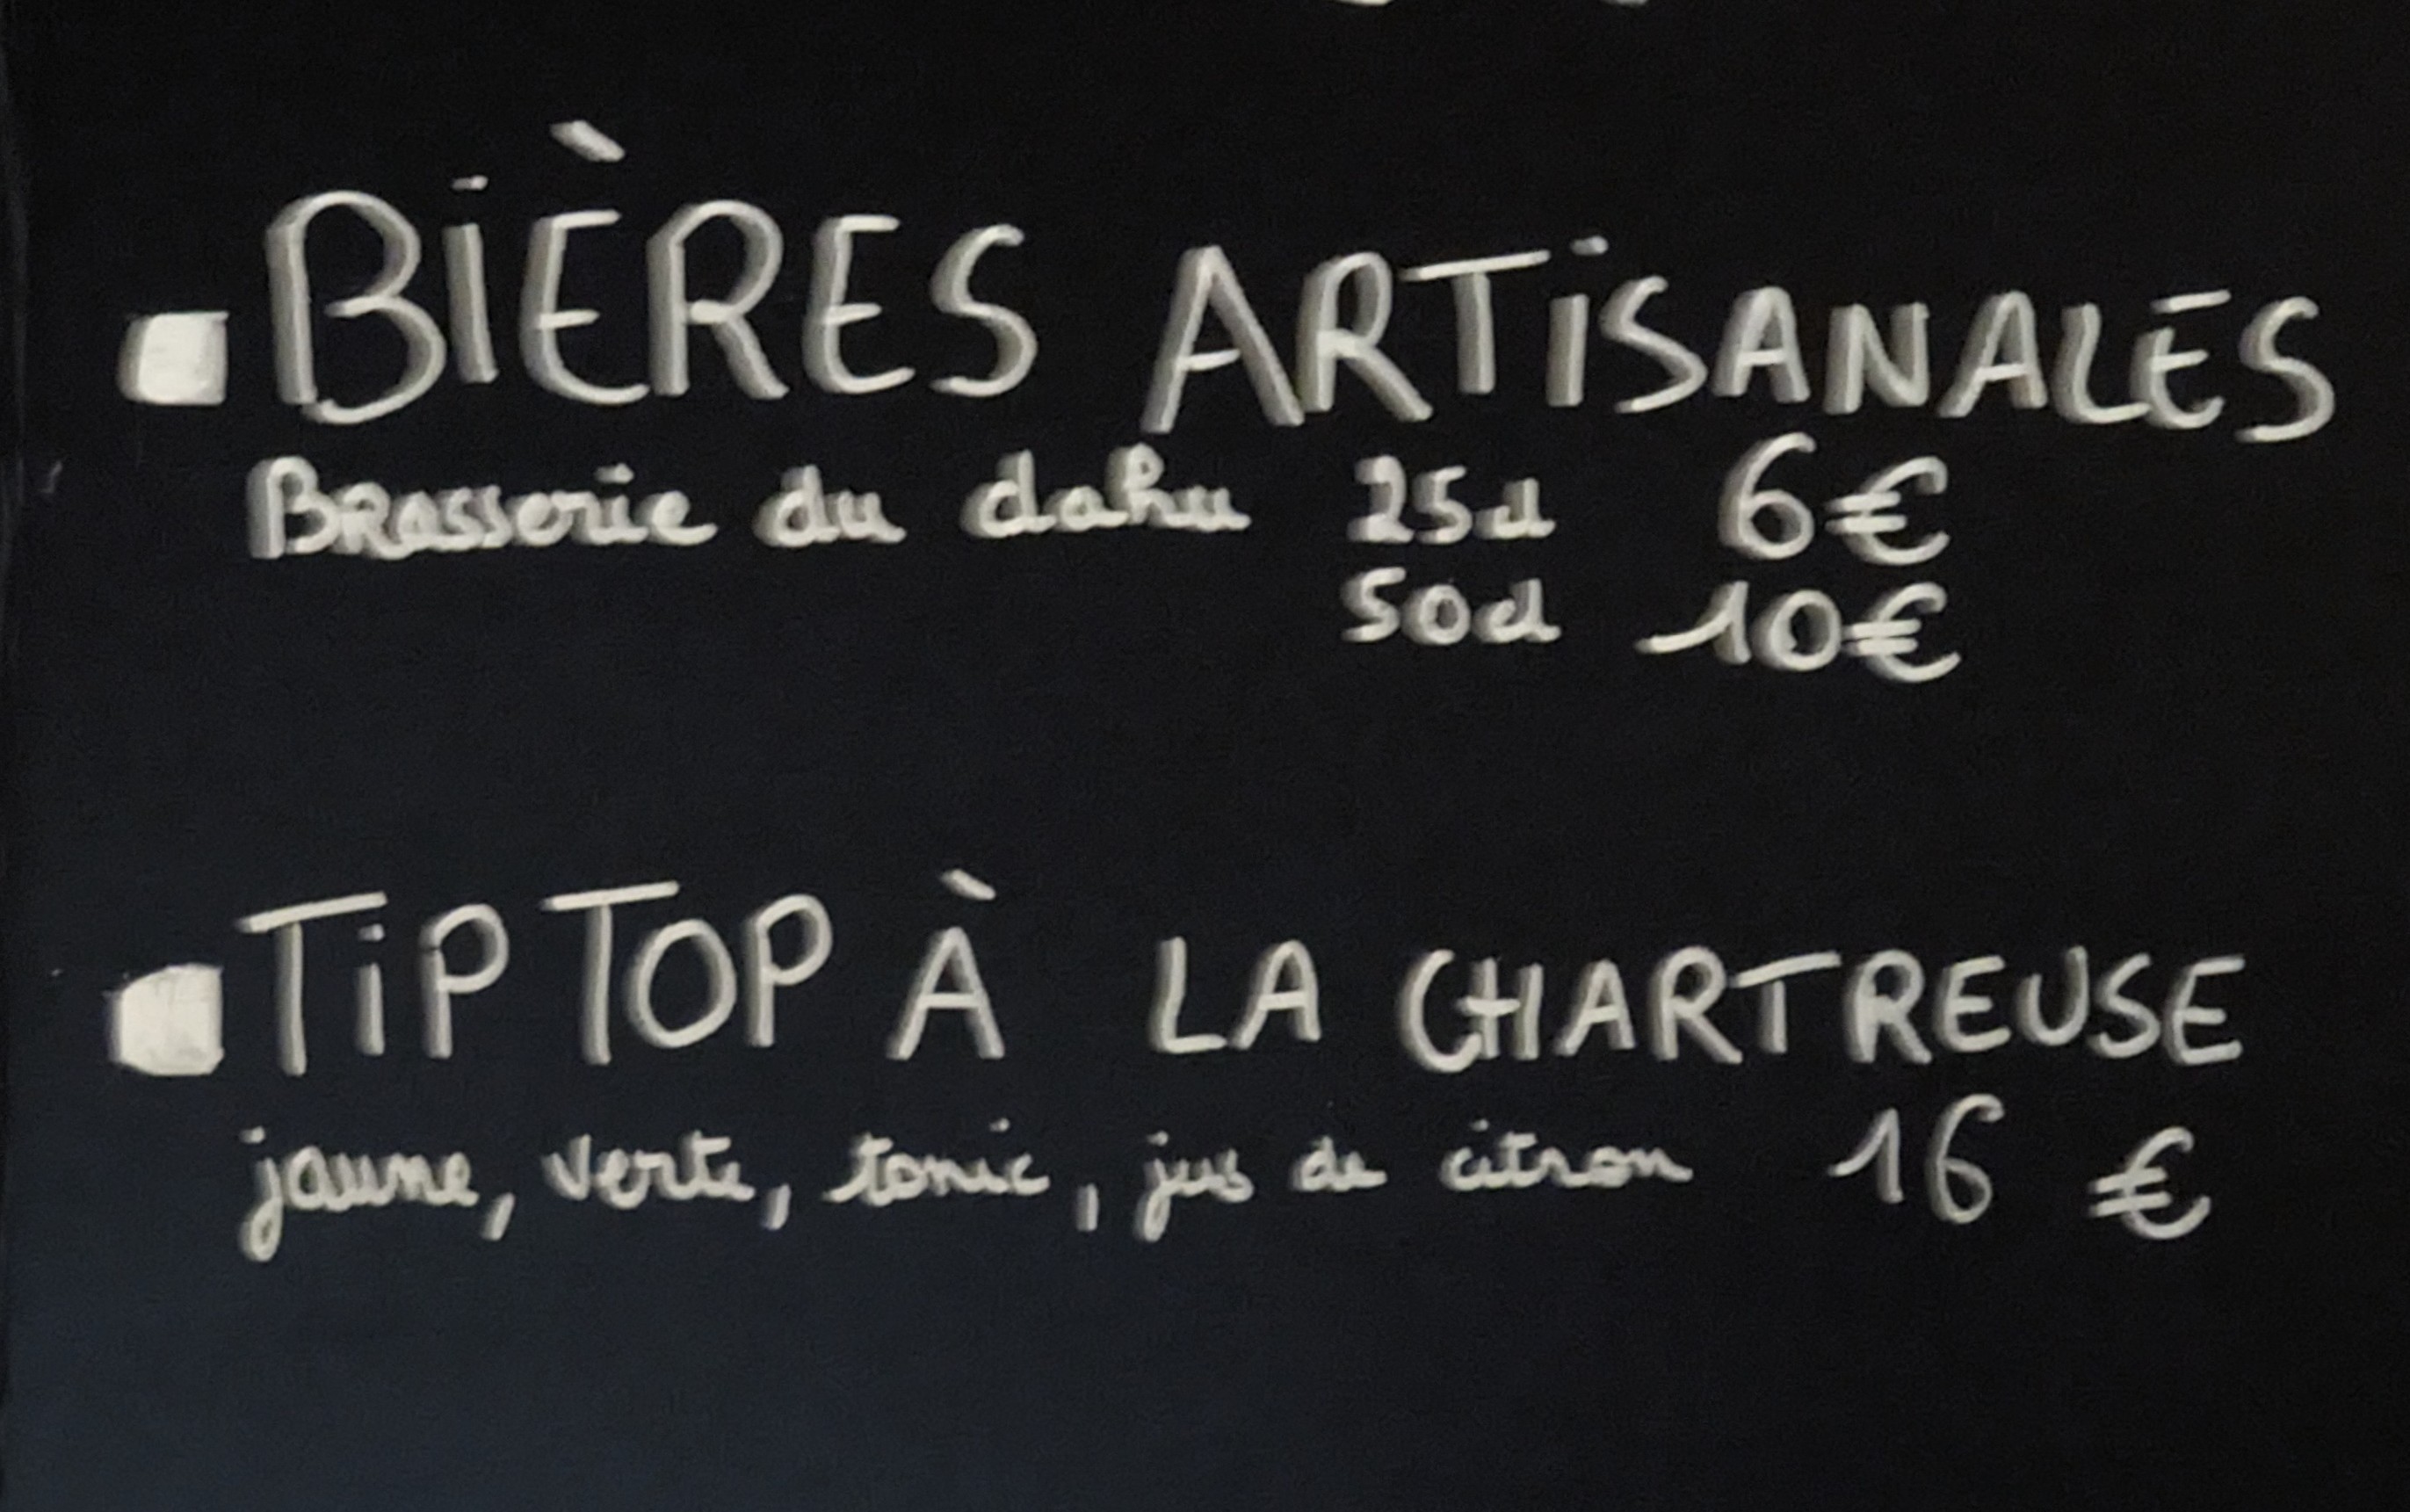 BIÈRES ARTISANALES
Brasserie du dahu 25cl 6€
50cl 10€
TIPTOP À LA CHARTREUSE
jaune, verte, tonic, jus de citron 16 €